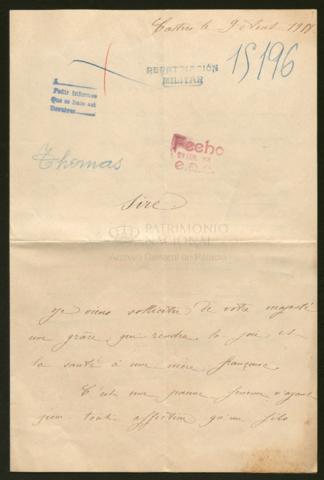 Castres le 9 Août 1918
REPATRIACIÓN
MILITAR
15196
A
Pedir Informes
Que se hace así
Thomas
Fecho
Sire
PATRIMONIO
NACIONAL
Archivo General de Palacio
Je viens solliciter de votre majesté
une grâce qui rendra la joie et
la santé à une mère française.
C'est une pauvre femme n'ayant
pour toute affection qu'un fils